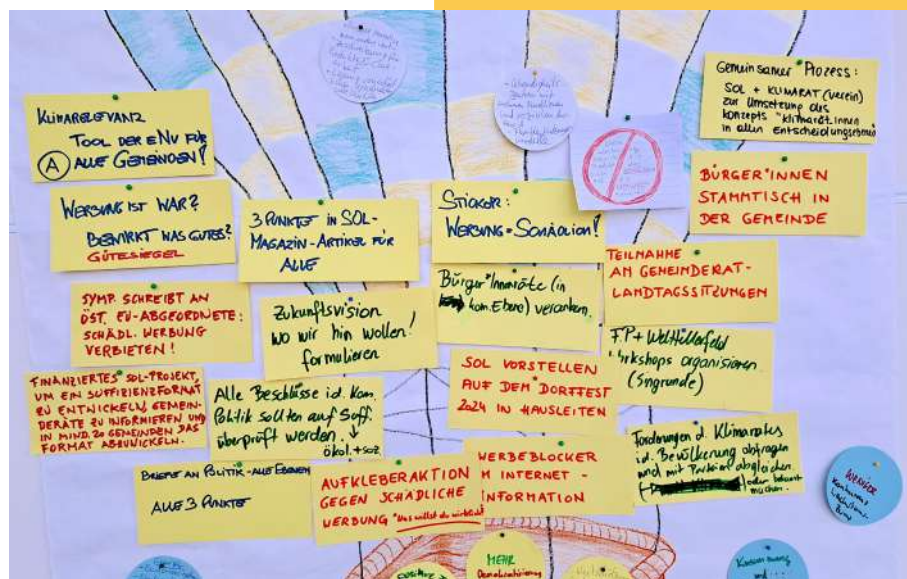 KLIMARELEVANZ
TOOL DER ENU FÜR
A ALLE GEMEINDEN!
WERBUNG IST WAR?
BEWIRKT WAS GUTES?
GÜTESIEGEL
SYMP. SCHREIBT AN
ÖST. EU-ABGEORDNETE:
SCHÄDL. WERBUNG
VERBIETEN!
FINANZIERTES SOL-PROJEKT,
UM EIN SUFFIZIENZFORMAT
ZU ENTWICKELN, GEMEIN-
DERÄTE ZU INFORMIEREN UND
IN MIND. 20 GEMEINDEN DAS
FORMAT ABZUWICKELN.
3 PUNKTE IN SOL-
MAGAZIN-ARTIKEL FÜR
ALLE
Zukunftsvision
wo wir hin wollen!
formulieren
Alle Beschlüsse i.d. Kom.
Politik sollten auf Suff.
überprüft werden.
ökol.+soz.
BRIEFE AN POLITIK-ALLE EBENEN
ALLE 3 PUNKTE
STICKER:
WERBUNG=SCHÄDLICH!
Bürger*Innenräte (in
kom. Ebene) verankern.
SOL VORSTELLEN
AUF DEM DORFFEST
2024 IN HAUSLEITEN
AUFKLEBERAKTION
GEGEN SCHÄDLICHE
WERBUNG "Was willst du wirklich?"
WERBEBLOCKER
IM INTERNET-
INFORMATION
Gemeinsamer Prozess:
SOL + KLIMARAT (Verein)
zur Umsetzung des
Konzepts "Klimarät.innen
in allen Entscheidungsebenen
BÜRGER*INNEN
STAMMTISCH IN
DER GEMEINDE
TEILNAHME
AN GEMEINDERAT-
LANDTAGSSITZUNGEN
F.P + Weltfillerfeld
Workshops organisieren
(Sngrunde)
Forderungen d. Klimarates
i.d. Bevölkerung abfragen
und mit Parteien abgleichen
oder bekannt
machen.
WENIGER
MEHR
Demokratisierung